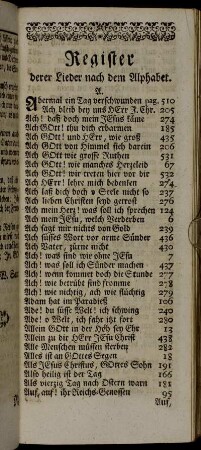 Register
derer Lieder nach dem Alphabet.
A.
Abermal ein Tag verschwunden pag. 510
Ach bleib bey uns HErr J. Chr. 205
Ach! daß doch mein JEsus käme 274
Ach GOtt! thu dich erbarmen 185
Ach GOtt! und HErr, wie groß 435
Ach GOtt von Himmel sieh darein 206
Ach GOtt wie groß Ruthen 531
Ach GOtt! wie manches Herzeleid 67
Ach GOtt! wir treten hier vor dir
Ach HErr! lehre mich bedenken 274
Ach laß doch doch o Seele nicht so 237
Ach lieben Christen seyd getrost 276
Ach mein Herz! was soll ich sprechen 124
Ach mein JEsu, welch Verderben 6
Ach sagt mir nichts von Gold 239
Ach süsses Wort vor arme Sünder 436
Ach Vater, zürne nicht 430
Ach! was sind wir ohne JEsu 7
Ach! was soll ich Sünder machen 437
Ach! wenn kommet doch die Stunde 277
Ach! wie betrübt sind fromme 278
Ach! wie nichtig, ach wie flüchtig 279
Adam hat im Paradieß 106
Ade! du süsse Welt! ich schwing 240
Ade! o Welt, ich fahr itzt fort 280
Allein GOtt in der Höh sey Ehr 13
Allein zu dir HErr JEsu Christ 438
Alle Menschen müssen sterben 282
Alles ist an Gottes Segen 18
Als JEsus Christus, GOttes Sohn 191
Also heilig ist der Tag 166
Als vierzig Tag nach Ostern warn 181
Auf, auf! ihr Reichs-Genossen 95
Auf,